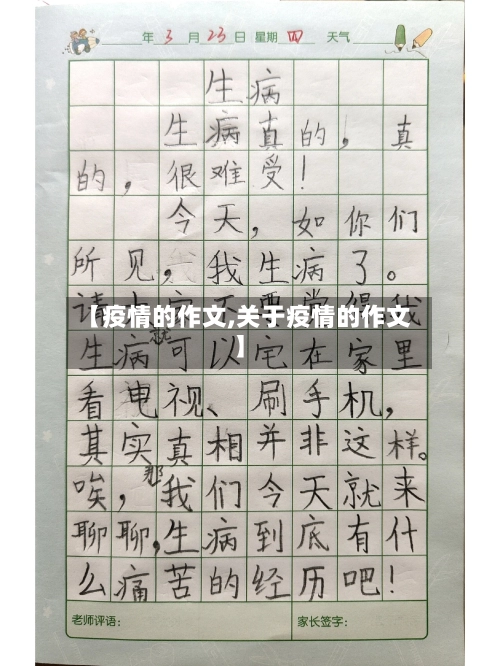 年 3 月 23 日 星期 四 天气
生病
生病真的，真
的，很难受！
今天，如你们
所见，我生病了。
【疫情的作文,关于疫情的作文】
生病就可以宅在家里
看电视、刷手机，
其实真相并非这样。
唉，那我们今天就来
聊聊，生病到底有什
么痛苦的经历吧！
老师评语： 家长签字：